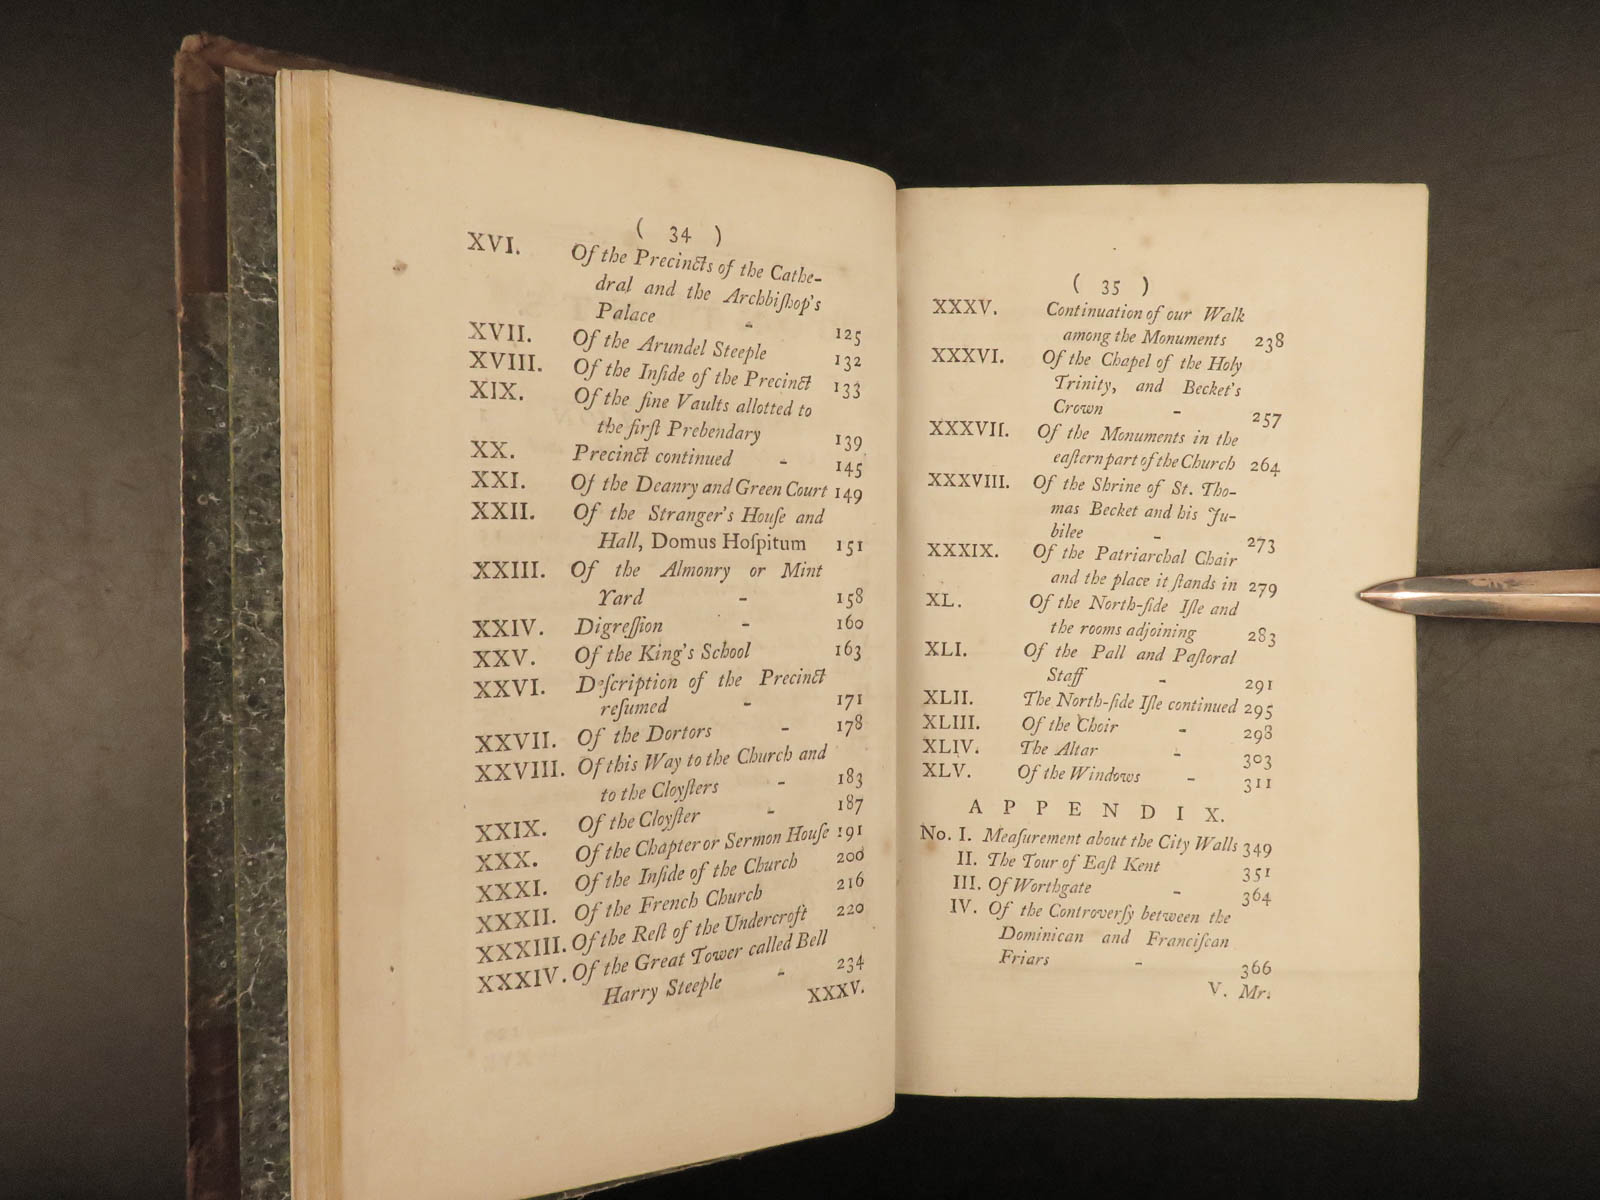 ( 34 )
XVI. Of the Precincts of the Cathe-
dral and the Archbiſhop's
Palace - 125
XVII. Of the Arundel Steeple 132
XVIII. Of the Inſide of the Precinct 133
XIX. Of the fine Vaults allotted to
the firſt Prebendary 139
XX. Precinct continued - 145
XXI. Of the Deanry and Green Court 149
XXII. Of the Stranger's Houſe and
Hall, Domus Hoſpitum 151
XXIII. Of the Almonry or Mint
Yard - 158
XXIV. Digreſſion - 160
XXV. Of the King's School 163
XXVI. Deſcription of the Precinct
reſumed - 171
XXVII. Of the Dortors - 178
XXVIII. Of this Way to the Church and
to the Cloyſters - 183
XXIX. Of the Cloyſter - 187
XXX. Of the Chapter or Sermon Houſe 191
XXXI. Of the Inſide of the Church 200
XXXII. Of the French Church 216
XXXIII. Of the Reſt of the Undercroft 220
XXXIV. Of the Great Tower called Bell
Harry Steeple - 234
XXXV.
( 35 )
XXXV. Continuation of our Walk
among the Monuments 238
XXXVI. Of the Chapel of the Holy
Trinity, and Becket's
Crown - 257
XXXVII. Of the Monuments in the
eaſtern part of the Church 264
XXXVIII. Of the Shrine of St. Tho-
mas Becket and his Ju-
bilee - 273
XXXIX. Of the Patriarchal Chair
and the place it ſtands in 279
XL. Of the North-ſide Iſle and
the rooms adjoining 283
XLI. Of the Pall and Paſtoral
Staff - 291
XLII. The North-ſide Iſle continued 295
XLIII. Of the Choir - 298
XLIV. The Altar - 303
XLV. Of the Windows - 311
APPENDIX.
No. I. Meaſurement about the City Walls 349
II. The Tour of Eaſt Kent 351
III. Of Worthgate - 364
IV. Of the Controverſy between the
Dominican and Franciſcan
Friars - 366
V. Mr.